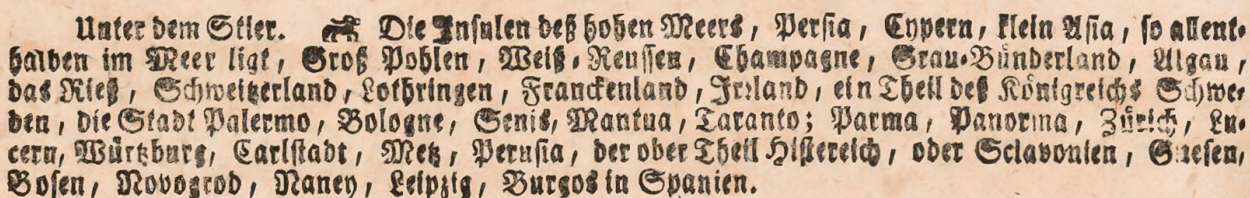 Unter dem Stier. Die Insulen deß hohen Meers, Persia, Cypern, klein Asia, so allent-
halben im Meer ligt, Groß Pohlen, Weiß-Reussen, Champagne, Grau-Bünderland, Algau,
das Rieß, Schweitzerland, Lothringen, Franckenland, Irrland, ein Theil deß Königreichs Schwe-
den, die Stadt Palermo, Bologne, Senis, Mantua, Taranto; Parma, Panorma, Zürich, Lu-
cern, Würtzburg, Carlstadt, Metz, Perusia, der ober Theil Histereich, oder Sclavonien, Gnesen,
Bosen, Novogrod, Nancy, Leipzig, Burgos in Spanien.